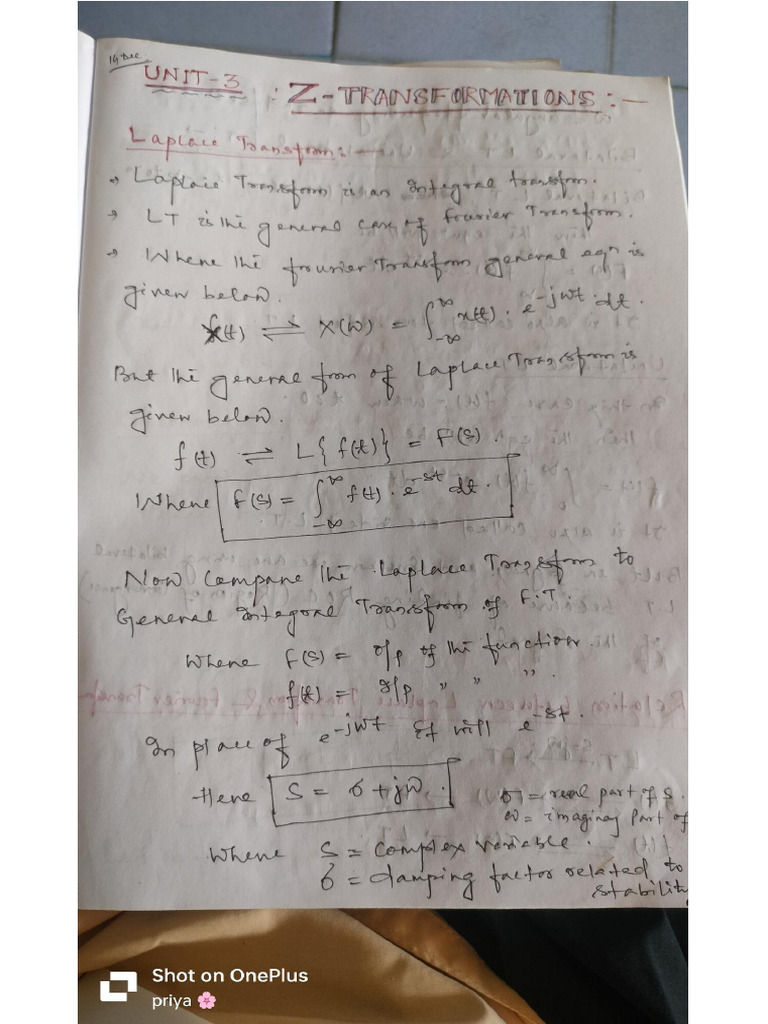 14 Dec.
UNIT-3 : Z-TRANSFORMATIONS :-
Laplace Transform :-
→ Laplace Transform is an Integral transform.
→ LT is the general case of Fourier Transform.
→ Where the fourier Transform general eqn is
given below.
x(t) ⇌ X(W) = ∫_{-∞}^{∞} x(t) . e^{-jwt} . dt.
But the general from of Laplace Transform is
given below.
f(t) ⇌ L{f(t)} = F(S).
Where F(S) = ∫_{-∞}^{∞} f(t) . e^{-st} dt.
Now Compare the Laplace Transform to
General Integral Transform of F.T.
Where F(S) = o/p of the function.
f(t) = I/p " " ".
In place of e^{-jwt} it will e^{-st}.
Here S = σ + jW. σ = real part of s.
ω = imaginay part of
Where S = Complex variable.
σ = damping factor related to
stability
Shot on OnePlus
priya 🌸